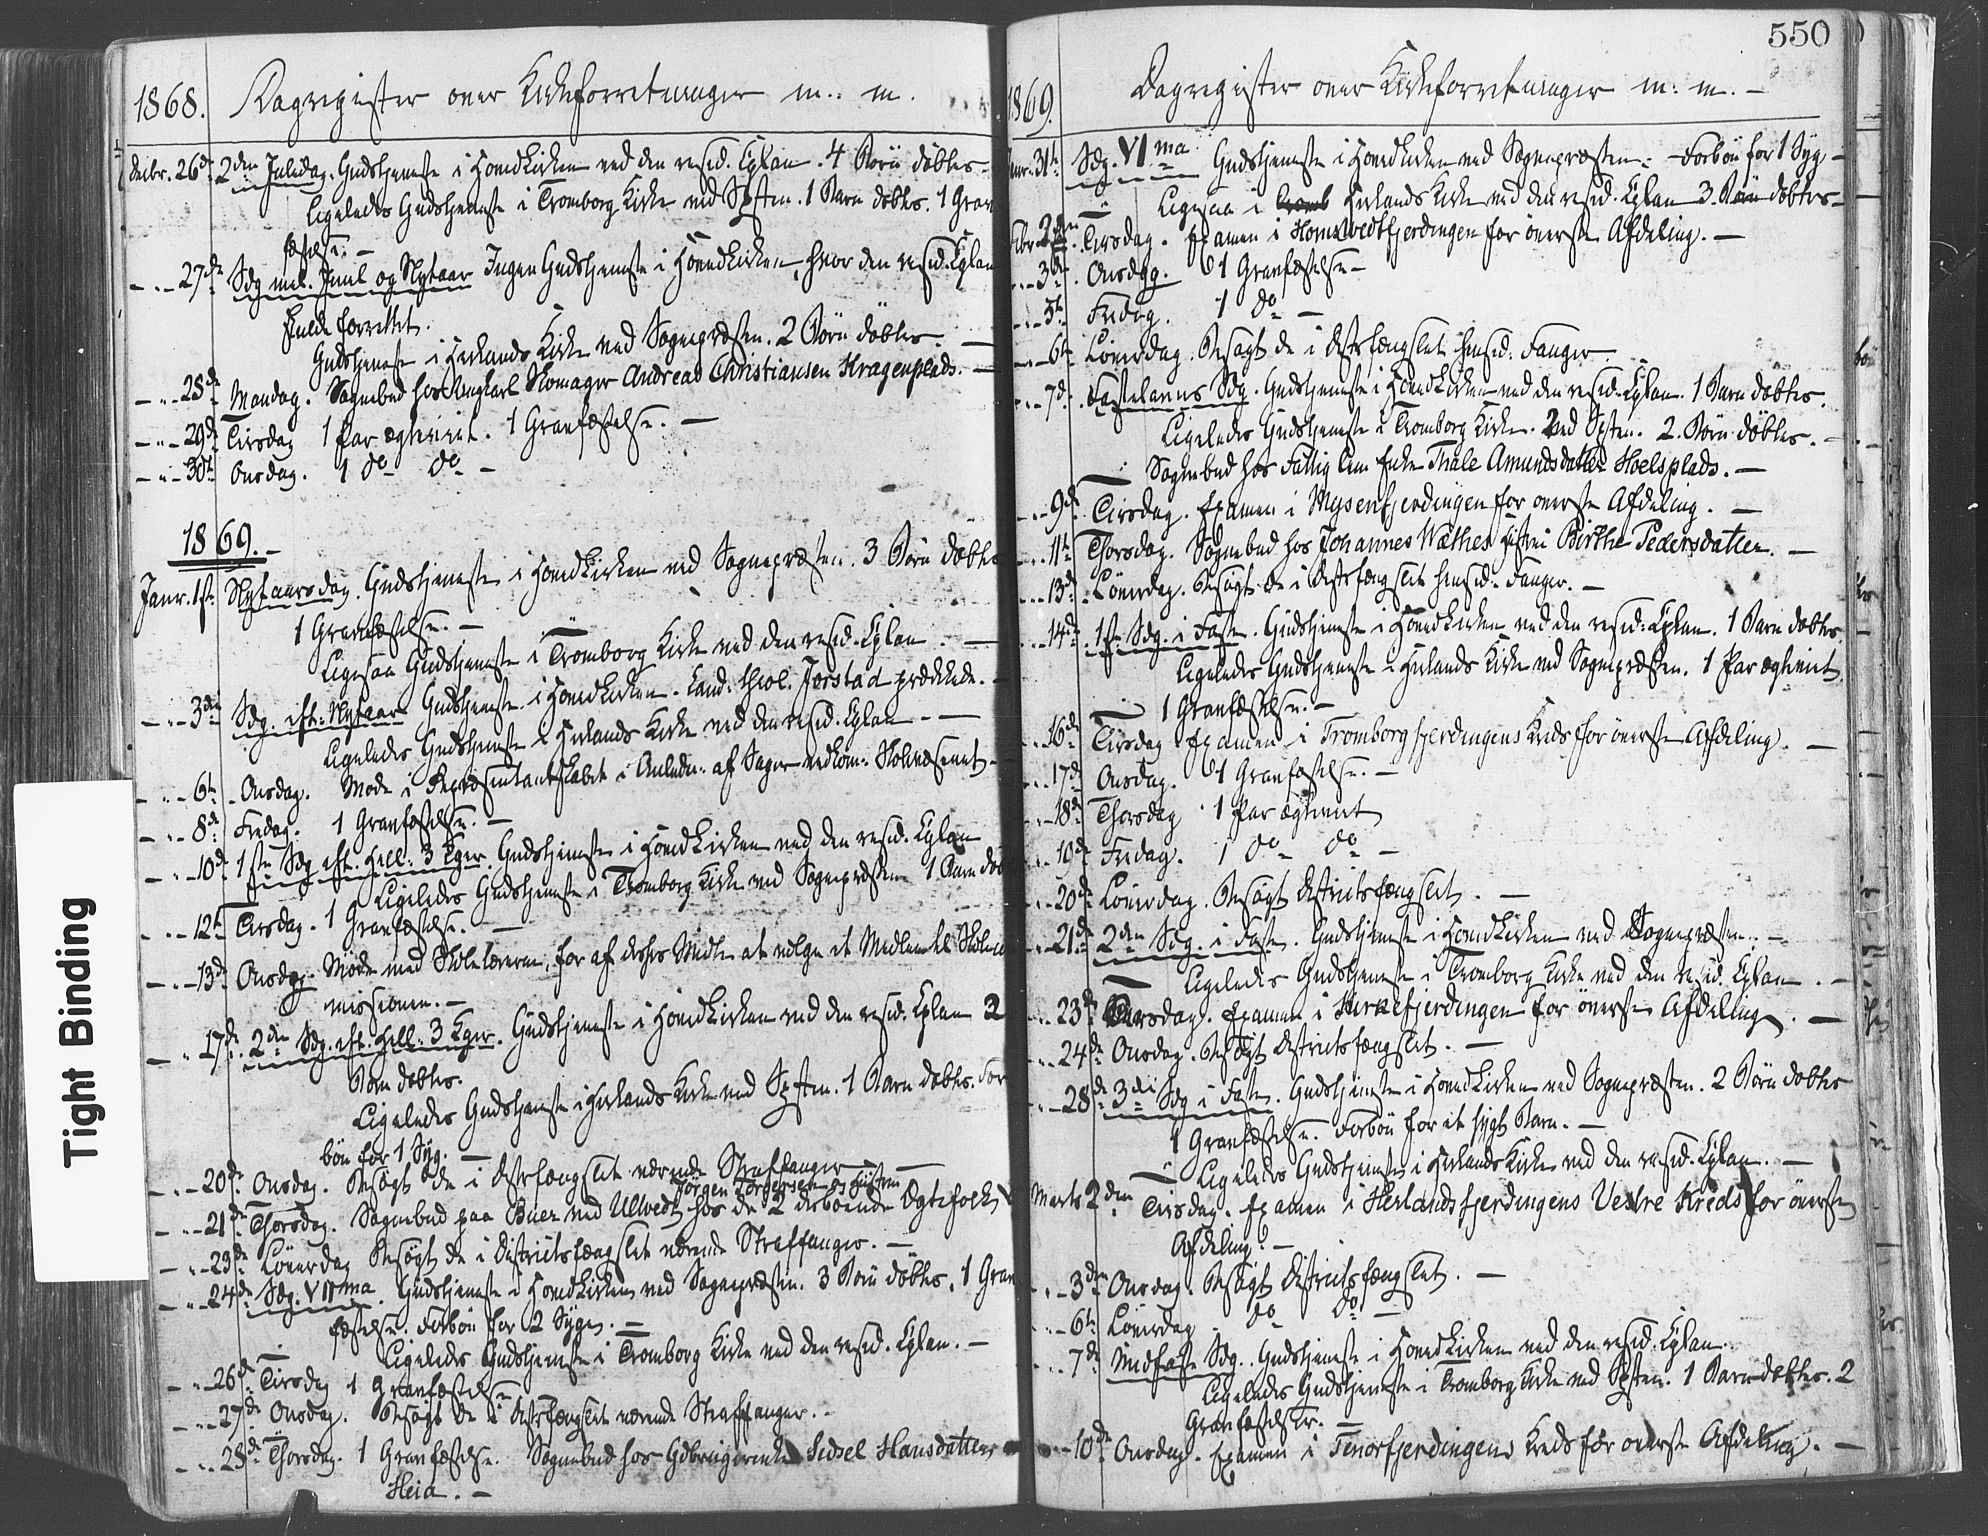 1868. Dagregister over Kirkeforretninger m. m.
Decbr. 26de 2den Juledag. Gudstjeneste i Hovedkirken ved den resid. Cplan. 4 Børn døbtes.
Ligeledes Gudstjeneste i Tromborg Kirke ved Spsten. 1 Barn døbtes. 1 Grav
fæstelse. —
— " — 27de Sdg mel. Juul og Nytaar Ingen Gudstjeneste i Hovedkirken, hvor den resid. Cplan
skulde forrettet.
Gudstjeneste i Herlands Kirke ved Sognepræsten. 2 Børn døbtes. —
— " — 28de Mandag. Sognebud hos Ungkarl Skomager Andreas Christiansen Kragenplads. —
— " — 29de Tirsdag 1 Par ægteviet. 1 Gravfæstelse. —
— " — 30te Onsdag. 1 do do —
1869. —
Janr. 1ste Nytaarsdag. Gudstjeneste i Hovedkirken ved Sognepræsten. 3 Børn døbtes
1 Gravfæstelse. —
Ligesaa Gudstjeneste i Tromborg Kirke ved den resid. Cplan. —
— " — 3die Sdg. eft. Nytaar Gudstjeneste i Hovedkirken. Cand. theol. Jerstad prækede. —
Ligeledes Gudstjeneste i Herlands Kirke ved den resid. Cplan. —
— " — 6te Onsdag. Møde i Repræsentantskabet i Anledn. af Sager vedkom. Skolevæsenet —
— " — 8de Fredag. 1 Gravfæstelse. —
— " — 10de 1ste Sdg eft. Hell. 3 Kger. Gudstjeneste i Hovedkirken ved den resid. Cplan
Ligeledes Gudstjeneste i Tromborg Kirke ved Sognepræsten 1 Barn døb
— " — 12te Tirsdag. 1 Gravfæstelse. —
— " — 13de Onsdag. Møde med Skolelærerne, for af deres Midte at vælge et Medlem til Skolecom
missionen. —
— " — 17de 2den Sdg. eft. Hell. 3 Kger. Gudstjeneste i Hovedkirken ved den resid. Cplan 3
Børn døbtes.
Ligeledes Gudstjeneste i Herlands Kirke ved Spsten. 1 Barn døbtes. For
bøn for 1 Syg. —
— " — 20de Onsdag. Besøgt de i Distrfængslet værende Straffanger —
Jörgen Torgersen og Hustru
— " — 21de Thorsdag. Sognebud paa Buer ved Ullvedt hos de 2 derboende Egtefolk
— " — 23de Löverdag Besøgt de i Districtsfængslet værende Straffanger. —
— " — 24de Sdg. VIIma. Gudstjeneste i Hovedkirken ved Sognepræsten. 3 Børn døbtes. 1 Grav
fæstelse. Forbøn for 2 Syge. —
Ligeledes Gudstjeneste i Tromborg Kirke ved den resid. Cplan. —
— " — 26de Tirsdag 1 Gravfæstelse
— " — 27de Onsdag. Besøgt de i Distrfængslet værende Straffanger. —
— " — 28de Thorsdag. 1 Gravfæstelse. Sognebud hos Gdbrugerenke Sidsel Hansdatter
Heia. —
550
1869. Dagregister over Kirkeforretninger m. m. —
Janr. 31te Sdg. VIma Gudstjeneste i Hovedkirken ved Sognepræsten. Forbøn for 1 Syg —
Ligesaa i Herlands Kirke ved den resid. Cplan 3 Børn døbtes —
Febr. 2den Tirsdag. Examen i Homstvedtfjerdingen for øverste Afdeling. —
— " — 3die Onsdag. 1 Gravfæstelse —
— " — 5te Fredag. 1 do —
— " — 6te Löverdag. Besøgt de i Distrfængslet hensid. Fanger
— " — 7de Fastelavns Sdg. Gudstjeneste i Hovedkirken ved den resid. Cplan. 1 Barn døbtes.
Ligeledes Gudstjeneste i Tromborg Kirke. Ved Spsten. 2 Børn døbtes. —
Sognebud hos Fattiglem Enke Thale Amundsdatter Hoelsplads. —
— " — 9de Tirsdag. Examen i Mysenfjerdingen for øverste Afdeling. —
— " — 11te Thorsdag. Sognebud hos Johannes Wathes Hustru Birthe Pedersdatter. —
— " — 13de Löverdag. Besøgt de i Distrfængslet hensid. Fanger. —
— " — 14de 1ste Sdg. i Faste. Gudstjeneste i Hovedkirken ved den resid. Cplan. 1 Barn døbtes.
Ligeledes Gudstjeneste i Herlands Kirke ved Sognepræsten. 1 Par ægteviet
1 Gravfæstelse. —
— " — 16de Tirsdag Examen i Tromborgfjerdingens Kreds for øverste Afdeling. —
— " — 17de Onsdag. 1 Gravfæstelse. —
— " — 18de Thorsdag 1 Par ægteviet
— " — 19de Fredag. 1 do do —
— " — 20de Löverdag. Besøgt Districtsfængslet. —
— " — 21de 2den Sdg. i Faste. Gudstjeneste i Hovedkirken ved Sognepræsten. —
Ligeledes Gudstjeneste i Tromborg Kirke ved den resid. Cplan. —
— " — 23de Tirsdag. Examen i Kirkefjerdingen for øverste Afdeling. —
— " — 24de Onsdag. Besøgt Districtsfængslet. —
— " — 28de 3die Sdg i Faste. Gudstjeneste i Hovedkirken ved Sognepræsten. 2 Børn døbtes
1 Gravfæstelse. Forbøn for et sygt Barn. —
Ligeledes Gudstjeneste i Herlands Kirke ved den resid. Cplan. —
Marts 2den Tirsdag. Examen i Herlandsfjerdingens Vestre Kreds for øverste
Afdeling. —
— " — 3die Onsdag. Besøgt Districtsfængslet. —
— " — 6te Löverdag do do —
— " — 7de Midfaste Sdg. Gudstjeneste i Hovedkirken ved den resid. Cplan.
Ligeledes Gudstjeneste i Tromborg Kirke ved Spsten. 1 Barn døbtes. 2
Gravfæstelser. —
— " — 10de Onsdag. Examen i Tenorfjerdingens Kreds for øverste Afdeling. —
Tight Binding